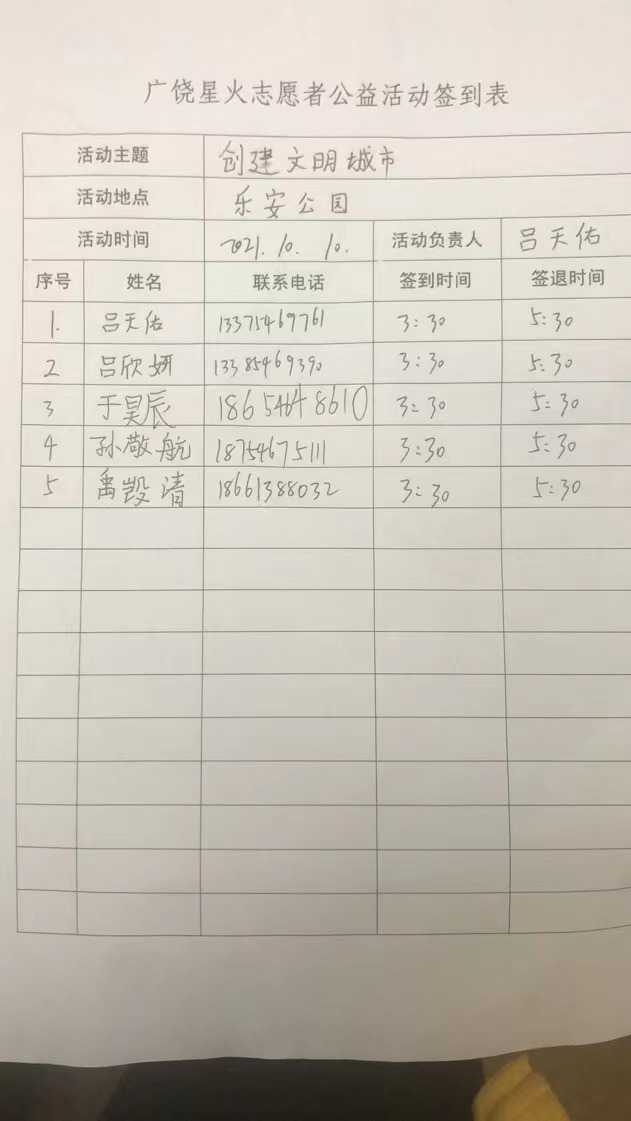 广饶星火志愿者公益活动签到表
活动主题 创建文明城市
活动地点 乐安公园
活动时间 2021.10.10. 活动负责人 吕天佑
序号 姓名 联系电话 签到时间 签退时间
1. 吕天佑 13375469761 3:30 5:30
2 吕欣妍 13385469390 3:30 5:30
3 于昊辰 18654648610 3:30 5:30
4 孙敬航 18754675111 3:30 5:30
5 禹 清 18661388032 3:30 5:30